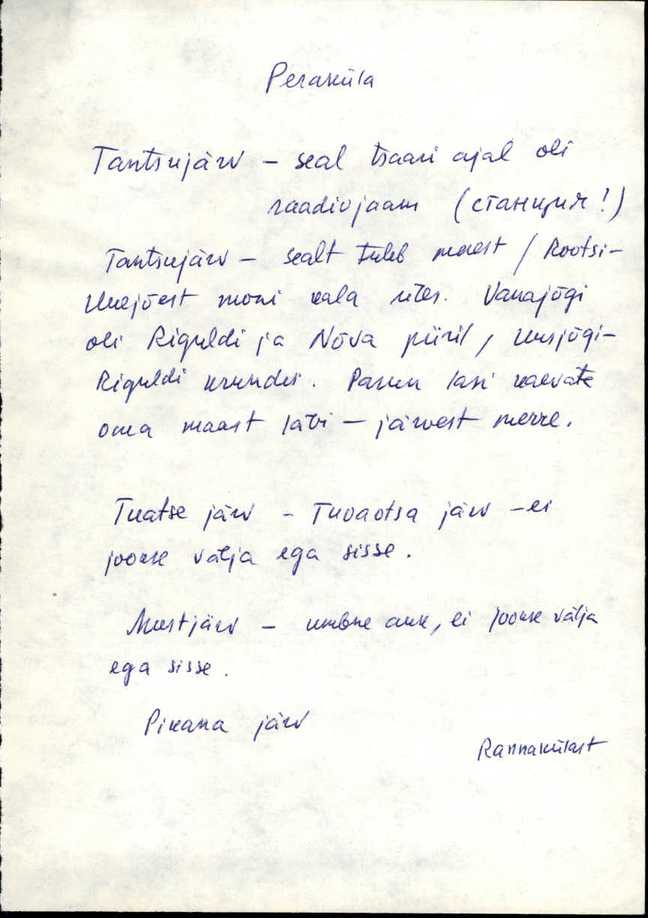 Peraküla
Tantsujärv – seal tsaari ajal oli
raadiojaam (станция!)
Tantsujärv – sealt tuleb merest / Rootsi-
Uuejõest moni kala üles. Vanajõgi
oli Riguldi ja Nõva piiril, Uusjõgi–
Riguldi krundil. Parun lasi kaevata
oma maast läbi – järvest merre.
Tuatse järv – Tuvaotsa järv – ei
jookse välja ega sisse.
Mustjärv – umbne auk, ei jookse välja
ega sisse.
Pikane järv
Rannakülast